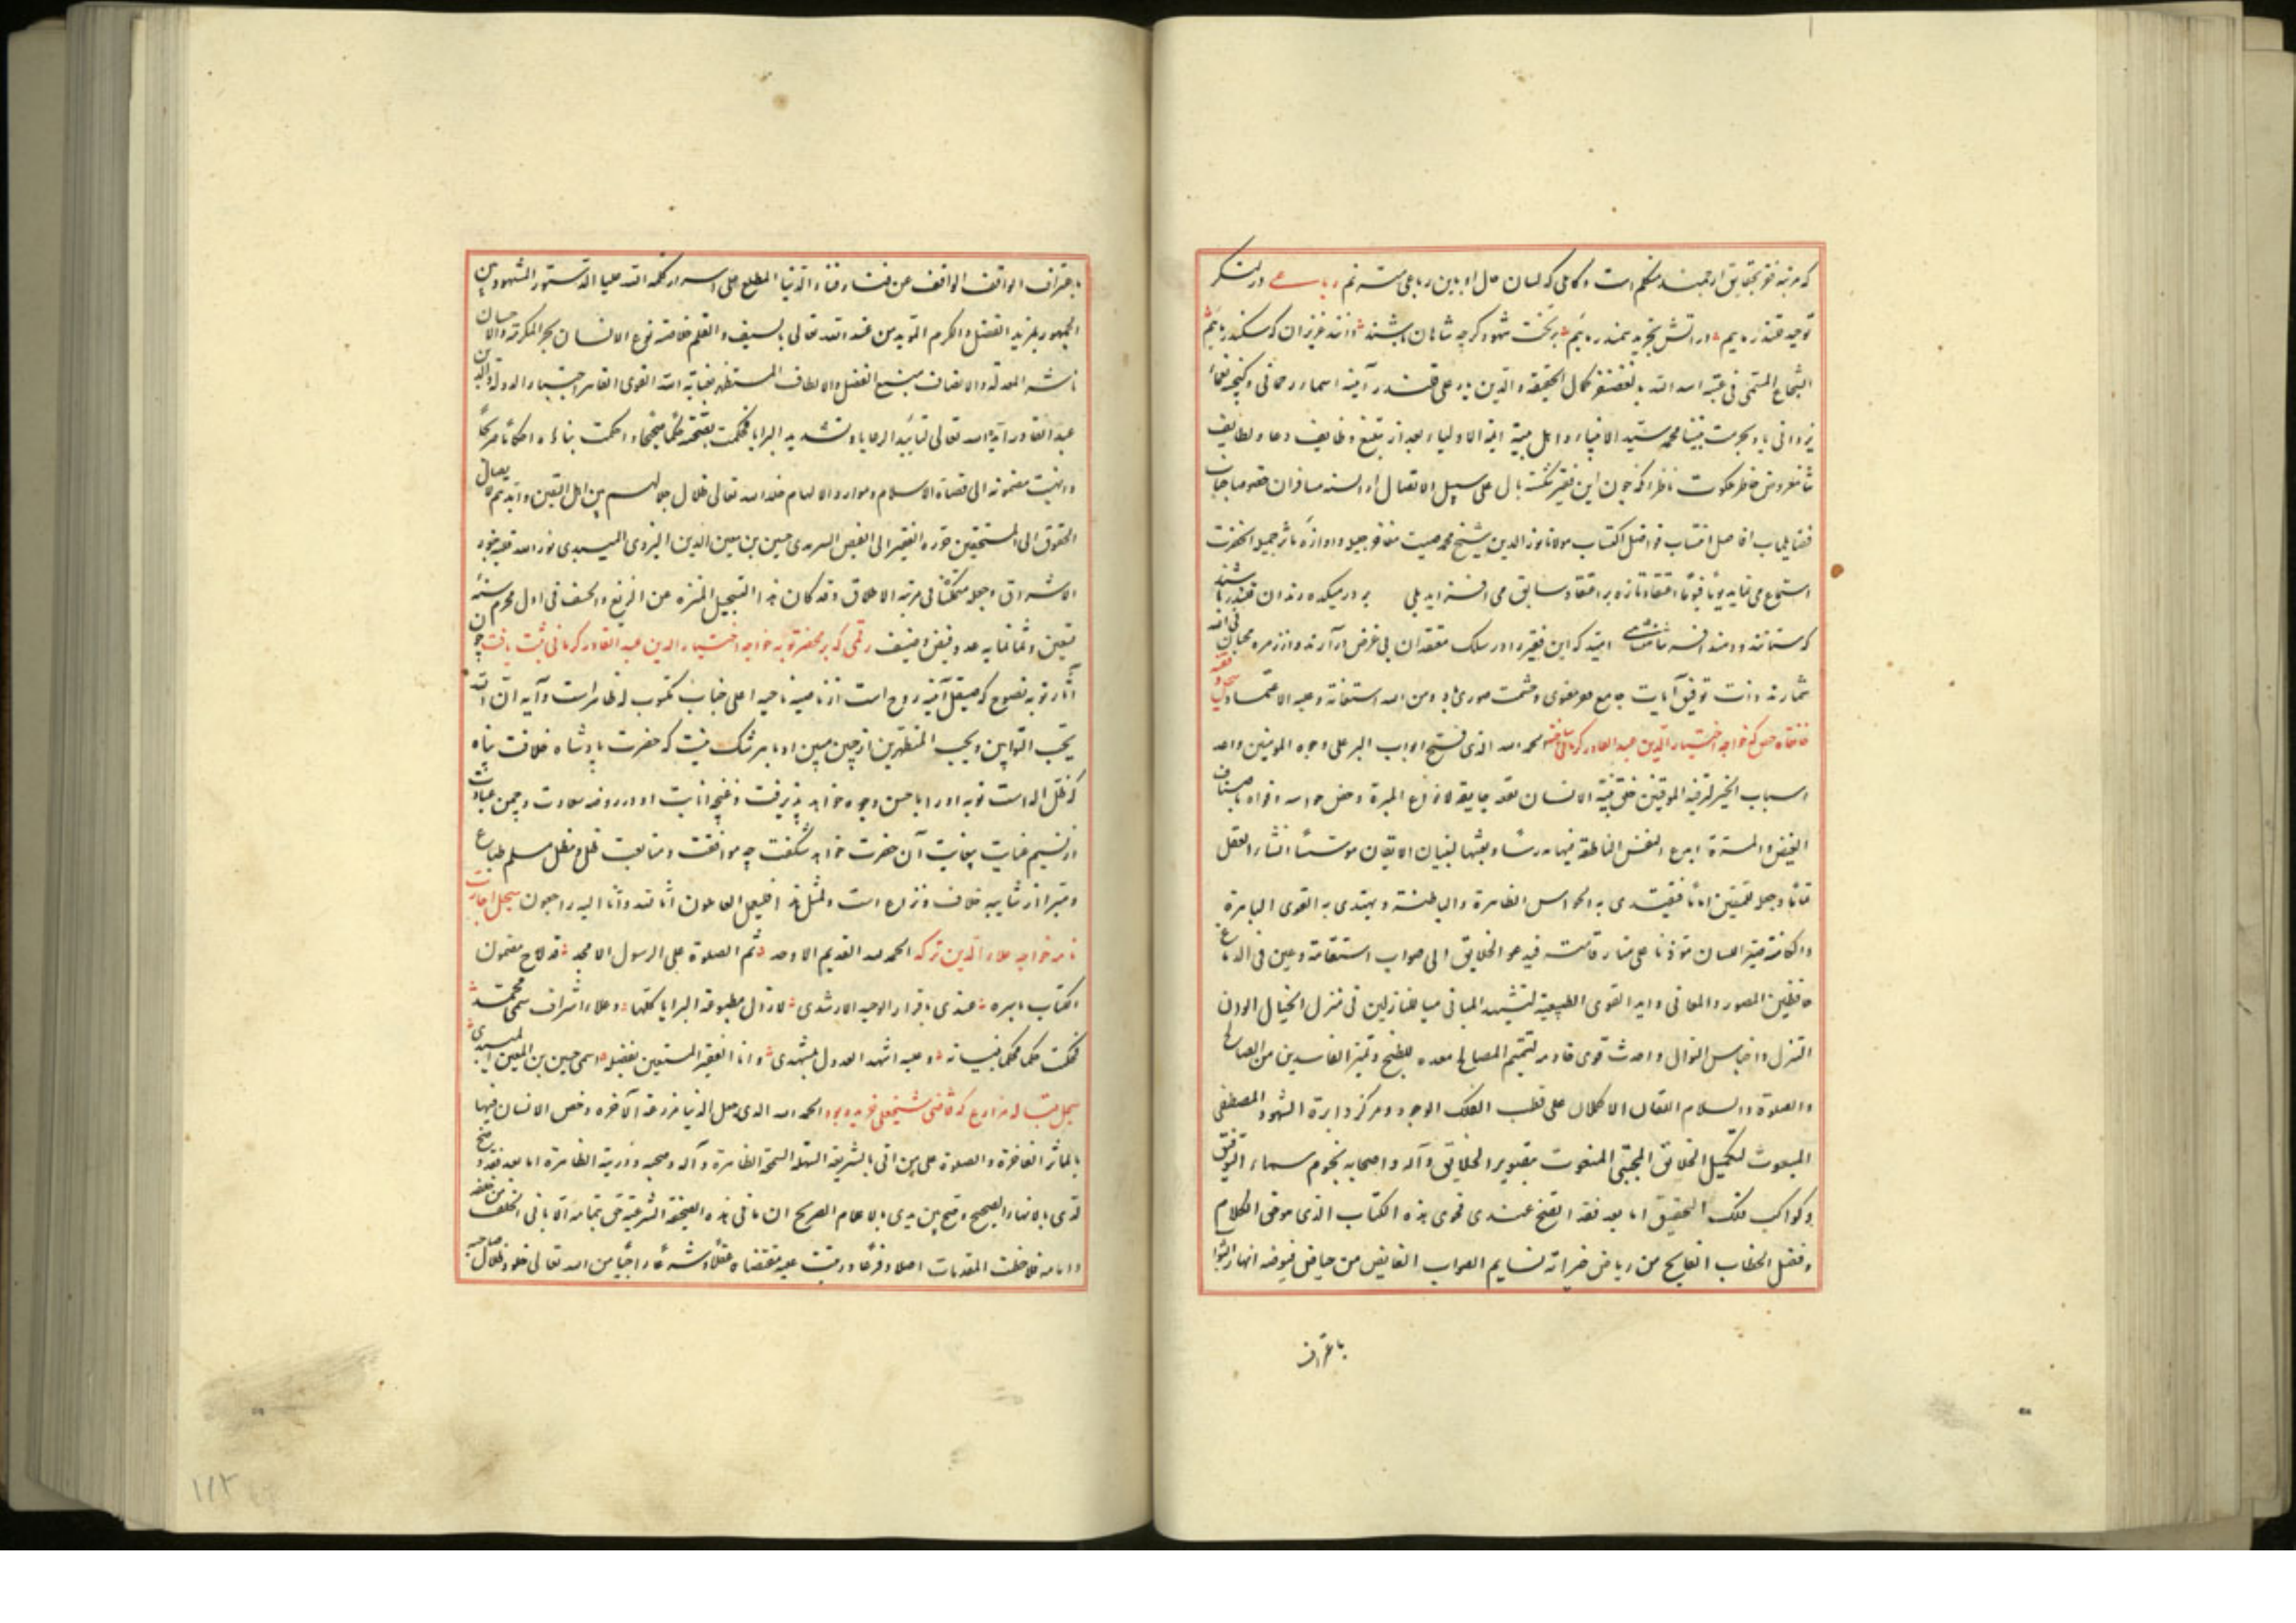 که مرتبه فقر بحقایق ارجمند متکلم است و کاملی که لسان حال او باین رباعی مترنم رباعی در لشکر
توحید قلندر ماییم در آتش تجرید سمندر ماییم بر تخت شهود کرچه شاهان باشند دانند عزیزان که سکندر ماییم
الشجاع المتمکن فی عتبة اسد الله کمال الحقیقة و الدین علی قلندر آینه اسماء رحمانی و کنجینه
یزدانی باد بحرمت نبینا محمد سید الانبیاء و اهل بیته ایمة الاولیاء بعد از تبلیغ وظایف دعا و لطایف
ثنا معروض خاطر ملکوت ناظر آنکه چون این فقیر شکسته بال علی سبیل الاتصال از السنه مسافران خصوصا جناب
فضایل مآب افاضل انتساب فواضل اکتساب مولانا نور الدین شیخ محمد صیت مفاخر جلیل و آوازه مآثر جمیل آنحضرت
استماع می نماید یوما فیوما اعتقاد تازه بر اعتقاد سابق می افزاید بلی بر در میکده رندان قلندر باشند
که ستانند و دهند افسر شاهنشاهی امید که این فقیر را در سلک معتقدان بی غرض در آرند و از زمره محبان فی الله
شمارند ذات توفیق آیات جامع معنوی و حشمت صوری باد و من الله استعانة و علیه الاعتماد سجل وقفیه
خانقاه که خواجه اختیار الدین عبد القادر کرمانی ساخته بود الحمد لله الذی فتح ابواب البر علی وجوه المومنین و اعد
اسباب الخیر لترفیه الموقنین خلق بنیة الانسان بقعة جامعة لانواع المبرة و خص حواسه و افواه باصناف
الفیض و المسرة ابدع النفس الناطقة فیها مدرسا و بعثها لبنیان الایقان موسسا انشاء العقل
اماما فیقتدی به الحواس الظاهرة و الباطنة و یهتدی به القوی البارزة
و الکامنة صیر اللسان موذنا علی منار قامته فیدعو الخلایق الی صواب استقامة و عین فی الدماغ
حافظین الصور و المعانی و اید القوی الطبیعیة لتشیید المبانی هیأ للنازلین فی منزل الخیال الوان
النزل و اجناس النوال و احدث قوی خادمه لتتمیم المصالح معده للطبخ و تمییز الفاسدین من الصالح
و الصلوة و السلام الاکملان علی قطب الفلک الوجود و مرکز دایرة الشهود المصطفی
المبعوث لتکمیل الخلایق المجتبی المنعوت بتصویر الخلایق و آله و اصحابه نجوم سماء التوفیق
و کواکب فلک التحقیق اما بعد فقد اتضح عندی فحوی هذه الکتاب الذی هو فی الکلام
و فصل الخطاب الفایح من ریاض خیراته نسایم الصواب الفایض من حیاض فیوضه انهار الثواب
باعتراف
باعتراف الواقف الواقف عن الدنیا المطلع علی اسرار کلمة الله هی العلیا الدستور المشهود بین
الجمهور بمزید الفضل و الکرم المؤید من عند الله تعالی بالسیف و القلم خلاصة نوع الانسان بحر المکرمة و الاحسان
ناشر المعدلة و الانصاف منبع الفضل و الالطاف المستظهر بعنایة الله القوی القاهر اختیار الدولة و الدین
عبد القادر ایده الله تعالی لتایید الرعایا و تشدید البرایا فحکمت بصحته حکما صحیحا و احکمت بناءه احکاما صریحا
و انهیت مضمونه الی قضاة الاسلام و موارد الالهام خلد الله تعالی ظلال جلالهم بین اهل الیقین و ایدیهم لایصال
الحقوق الی المستحقین حرره الفقیر الی الفیض السرمدی حسین بن معین الدین الیزدی المیبدی نور الله قلبه بنور
الاشراق و جعله متمکنا فی مرتبة الاطلاق و قد کان هذا التسجیل المنزه عن الزیغ و الحیف فی اول محرم سنة
تسعین و ثمانمایه عدد فیض و نیف رقمی که بر محضر توبه خواجه اختیار الدین عبد القادر کرمانی ثبت یافت چون
آثار توبه نصوح که صیقل آینه روح است از ناصیه ناحیه اعلی جناب مکتوب له ظاهر است و آیه ان الله
یحب التوابین و یحب المتطهرین از جبین مبین او باهر شک نیست که حضرت پادشاه خلافت پناه
که ظل اله است توبه او را باحسن وجوه خواهد پذیرفت و غنچه انابت او در روضه سعادت و چمن عبادت
از نسیم عنایت بیغایت آن حضرت خواهد شکفت چه موافقت و متابعت ظل و مظل مسلم طباع
و مبرا از شایبه خلاف و نزاع است و لمثل هذا فلیعمل العاملون انا لله و انا الیه راجعون سجل اجارت
نامه خواجه علاء الدین ترکه الحمد لله القدیم الاوحد ثم الصلوة علی الرسول الامجد قد لاح مضمون
الکتاب باسره عندی باقرار الوحید الارشدی لا زال مطبوعة البرایا کلها و علاء اشراف سمی محمد
فحکمت حکما محکما بنیانه و علیه اشهد العدول بمشهدی و انا الفقیر المستعین بفضله و اسمی حسین بن المعین المیبدی
سجل قباله مزارع که قاضی شیخعلی خریده بود الحمد لله الذی جعل الدنیا مزرعة الآخره و خص الانسان فیها
بالمآثر الفاخرة و الصلوة علی من اتی بالشریعة السهلة السمحة الظاهرة و آله و صحبه و ذریته الطاهرة اما بعد فقد وضح
لدی بالانهاء الصحیح و صح بین یدی بالاعلام الصریح ان ما فی هذه الصحیفة الشرعیة حق
و امامه فلاحظت المقدمات اصلا و فرعا و رتبت علیه مقتضاه عقلا و شرعا راجیا من الله تعالی خلود ظلال صاحبه
۱۱۲